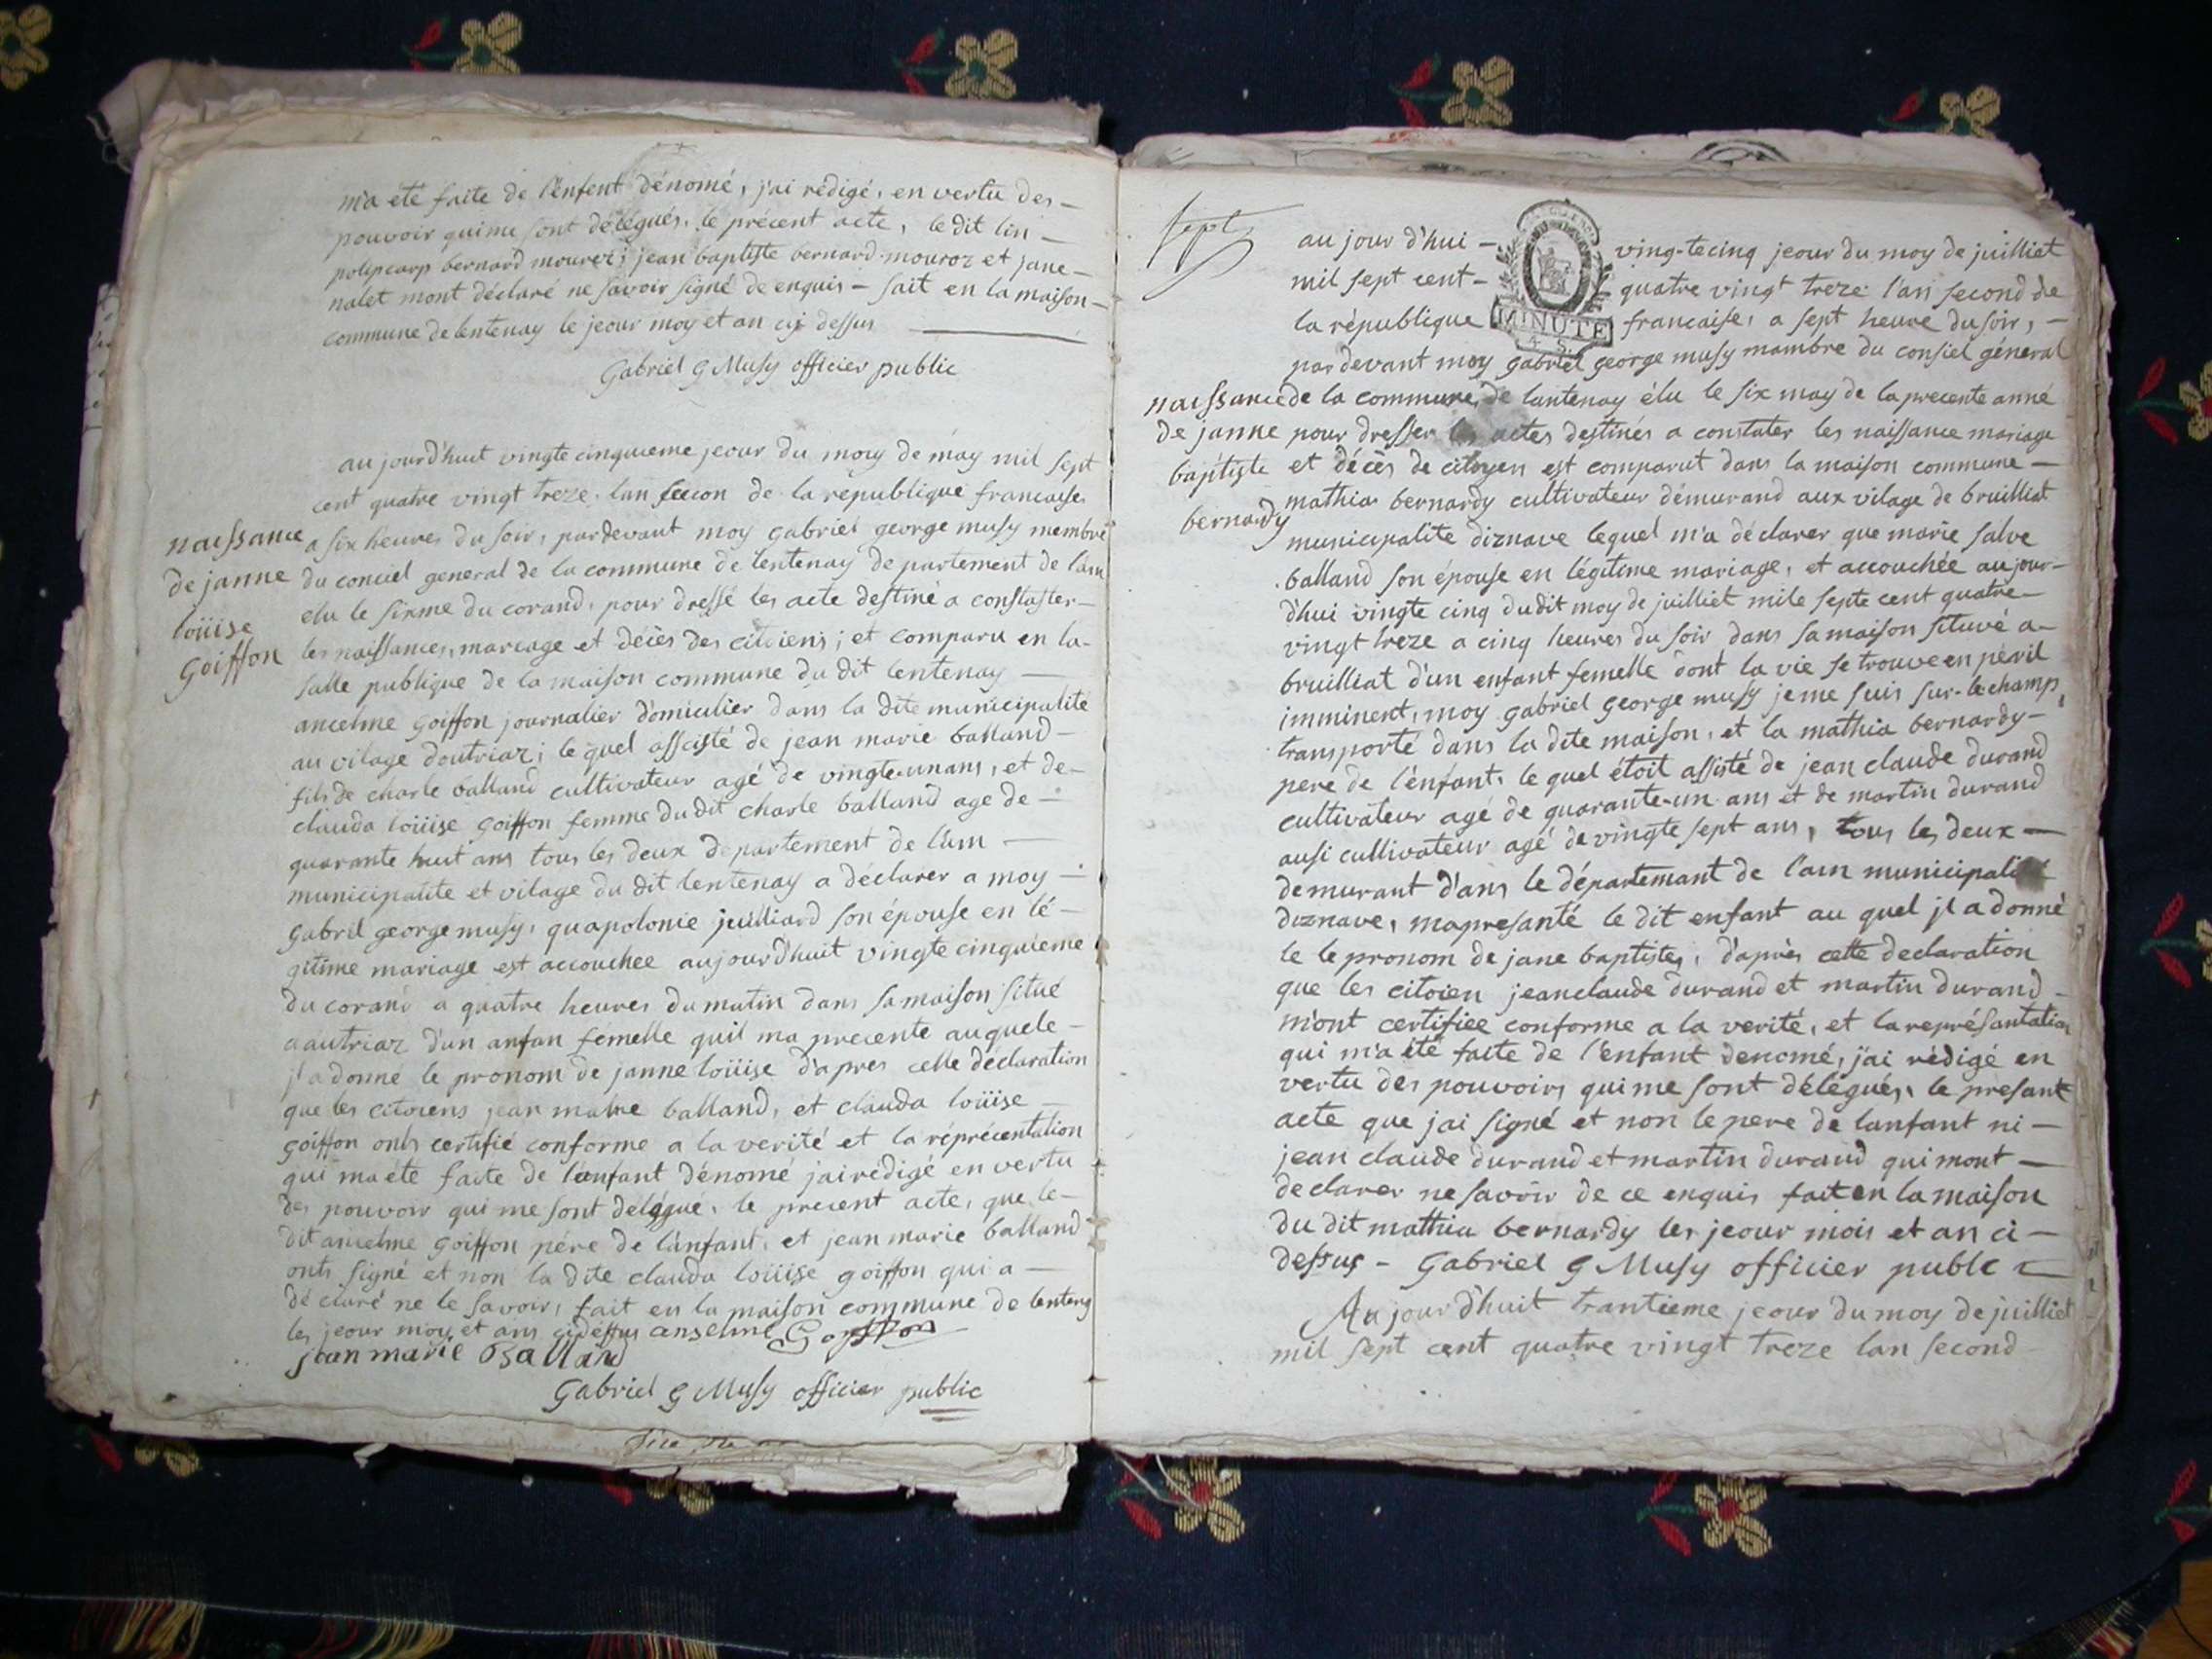 m'a été faite de l'enfent dénomé, j'ai rédigé, en vertu des
pouvoir qui me sont délégués, le précent acte, le dit lin
polipcarp bernard mouroz; jean baptiste bernard mouroz et jane
nalet m'ont déclaré ne savoir signé de enquis - fait en la maison
commune de lentenay le jeour moy et an cy dessus
Gabriel G Musy officier public
au jourd'huit vingte cinquieme jeour du moy de may mil sept
cent quatre vingt treze. lan secon de la république francaise
a six heures du soir, pardevant moy gabriel george musy membre
du conciel general de la commune de lentenay departement de l'ain
elu le sixme du corand, pour dressé les acte destiné a constaster
les naissances, mareage et décès des citoiens; et comparu en la
salle publique de la maison commune du dit lentenay
ancelme goiffon journalier domicilier dans la dite municipalité
au vilage doutriaz; le quel assisté de jean marie balland
fils de charle balland cultivateur agé de vingte-unans, et de
clauda loüise goiffon femme dudit charle balland age de
quarante huit ans tous les deux departement de l'ain
municipalite et vilage du dit lentenay a déclarer a moy
gabril george musy, quapolonie juilliard son épouse en lé
gitime mariage est accouchee aujourd'huit vingte cinquieme
du corand a quatre heures du matin dans sa maison situé
a autriaz d'un anfan femelle quil ma precente auquele
jl a donné le pronom de janne loüise d'apres cette déclaration
que les citoiens jean marie balland, et clauda loüise
goiffon onts certifié conforme a la verité et la réprécentation
qui ma eté faite de l'anfant dénomé jai rédigé en vertu
des pouvoir qui me sont délégué, le precent acte, que le
dit ancelme goiffon pére de l'anfant, et jean marie balland
onts signé et non la dite clauda loüise goiffon qui a
dé claré ne le savoir, fait en la maison commune de lenteng
les jeour moy et ans cidessus anselme Goiffon
jean marie Balland
Gabriel G Musy officier public
naissance
de janne
loüise
goiffon
sept
au jour d'hui - ving-tecinq jeour du moy de juilliet
mil sept cent - quatre vingt treze l'an second de
la république francaise, a sept heure du soir, -
MINUTE
4 S.
pardevant moy gabriel george musy mambre du consiel géneral
de la commune de lantenay élu le six may de la precente anné
pour dresser les actes destinés a constater les naissance mariage
et décès de citoyen est comparut dans la maison commune
mathia bernardy cultivateur démurand aux vilage de bruilliat
municipalite diznave lequel m'a déclarer que marie salve
balland son épouse en légitime mariage, et accouchée aujour-
d'hui vingte cinq dudit moy de juilliet mile septe cent quatre
vingt treze a cinq heures du soir dans sa maison situvé a
bruilliat d'un enfant femelle dont la vie se trouve en péril
imminent, moy gabriel george musy je me suis sur-le champ,
transporté dans la dite maison, et la mathia bernardy
pere de l'énfant, le quel étoit assisté de jean claude durand
cultivateur agé de quarante-un ans et de martin durand
ausi cultivateur agé de vingte sept ans, tous les deux
demurant d'ans le départemant de l'ain municipalité
diznave, mapresanté le dit enfant au quel jl a donné
le le pronom de jane baptiste, d'après cette declaration
que les citoien jeanclaude durand et martin durand
m'ont certifiee conforme a la verité, et la représantation
qui m'a été faite de l'énfant denomé, j'ai rédigé en
vertu des pouvoirs qui me sont délegués, le presant
acte que jai signé et non le pere de lanfant ni
jean claude durand et martin durand qui mont
declarer ne savoir de ce enquis fait en la maison
du dit mathia bernardy les jeour mois et an ci
dessus - Gabriel G Musy officier publc
Aujourd'huit trantieme jeour du moy de juilliet
mil sept cent quatre vingt treze lan second
naissance
de janne
baptiste
bernardy